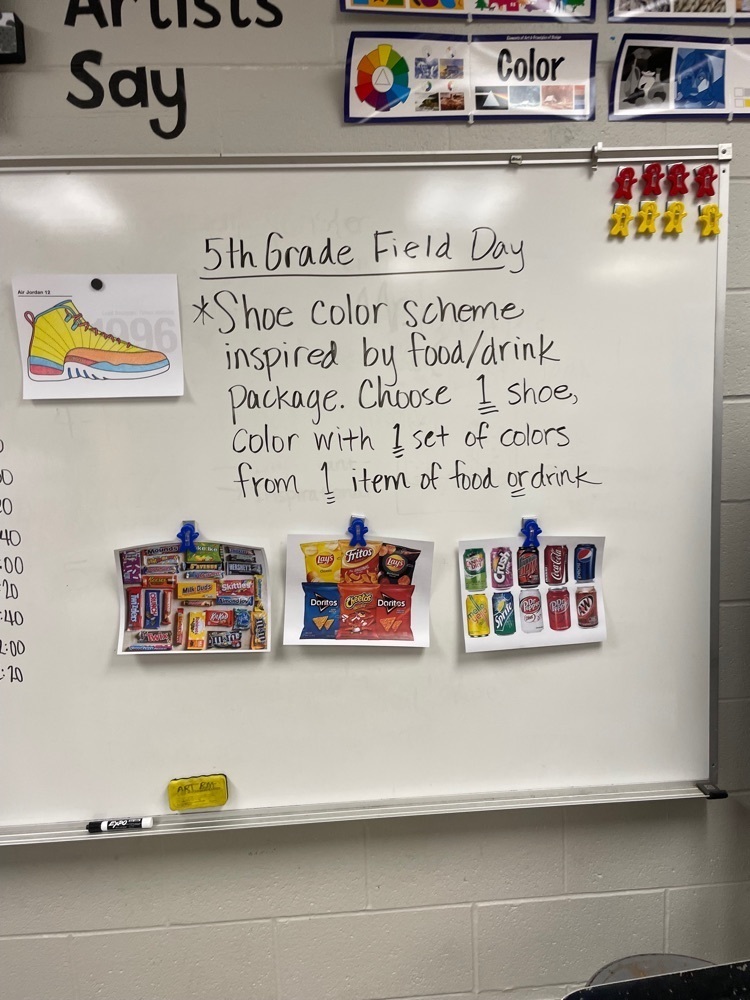 Artists
Say
Color
5th Grade Field Day
Air Jordan 12
1996
*Shoe color scheme
inspired by food/drink
package. Choose 1 shoe,
color with 1 set of colors
from 1 item of food or drink
:00
:20
:40
2:00
:20
Lay's
Fritos
Lay's
Doritos
Cheetos
Doritos
Milk Duds
Skittles
Hershey's
KitKat
m&m's
Twix
Crush
Coca-Cola
pepsi
Sprite
Dr Pepper
A&W
ART RM
EXPO